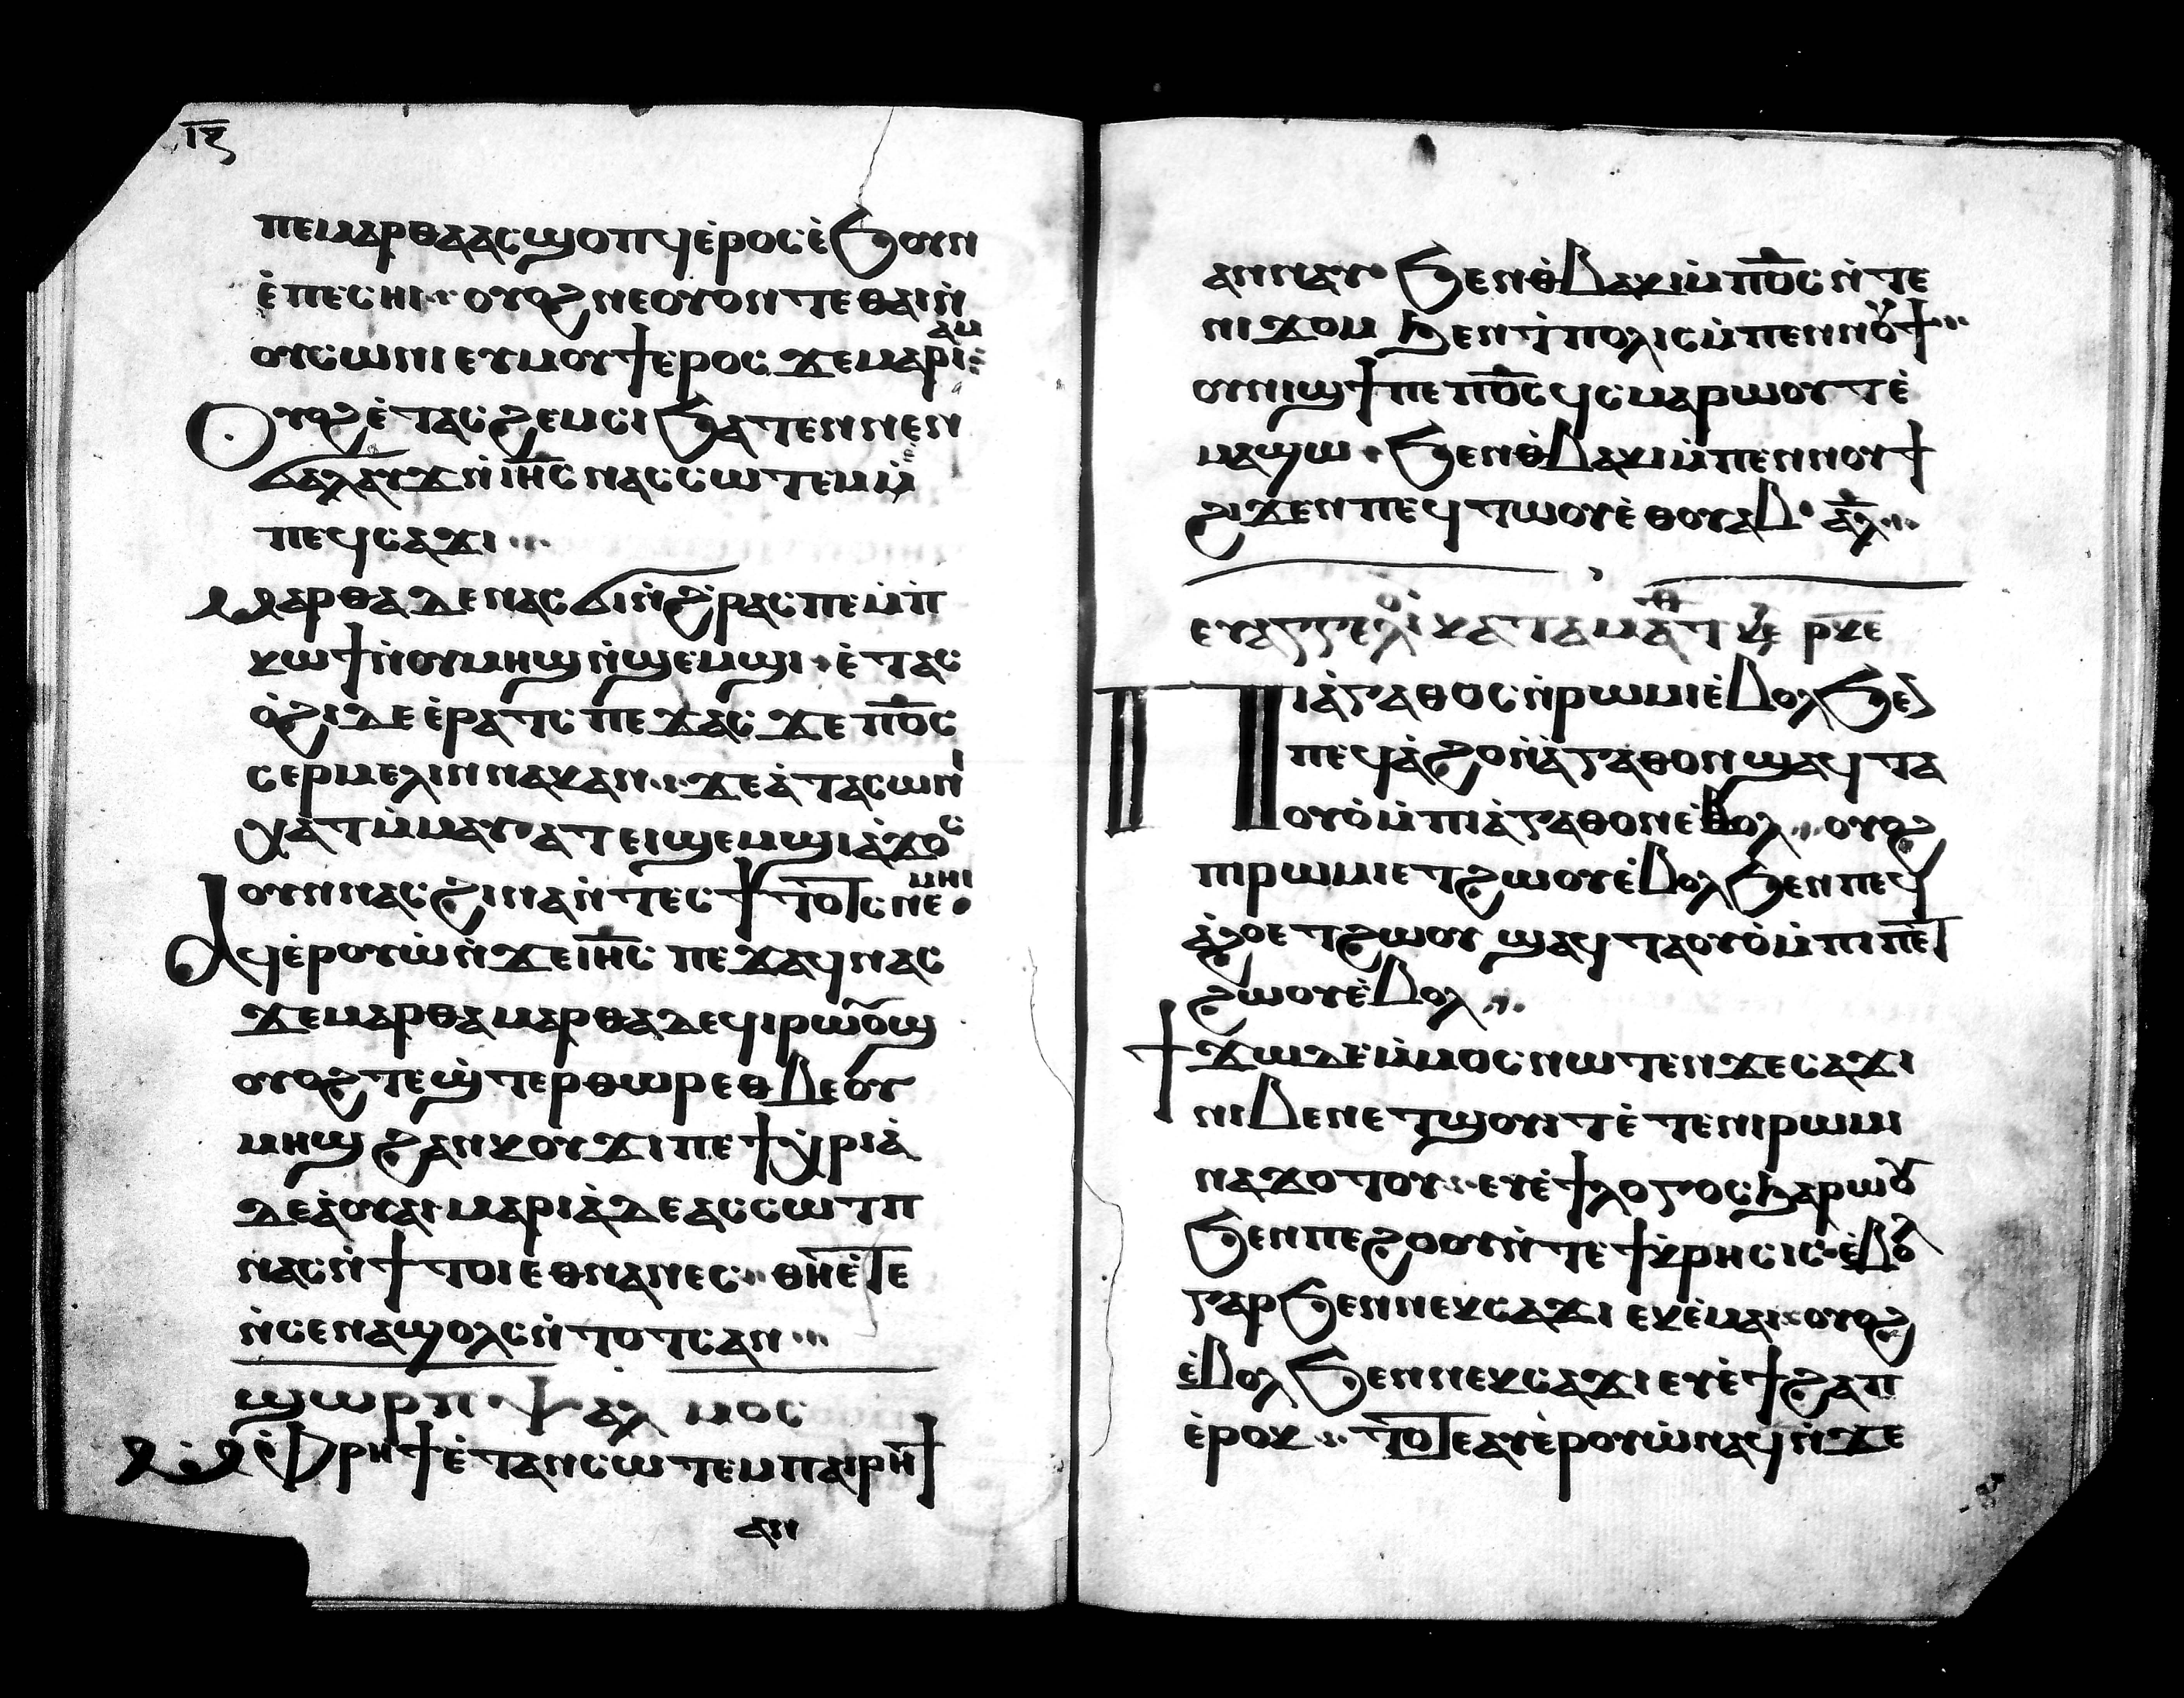 ⲓⲋ
ⲡⲉⲙⲁⲣⲑⲁⲁⲥϣⲟⲡϥⲉ̀ⲣⲟⲥⲉ̀ϧⲟⲩⲛ
ⲉ̀ⲡⲉⲥⲏⲓ ⲟⲩⲟϩ ⲛⲉⲟⲩⲟⲛⲧⲉⲑⲁⲓⲛ̀
ⲟⲩⲥⲱⲛⲓ ⲉⲩⲙⲟⲩϯⲉ̀ⲣⲟⲥ ϫⲉⲙⲁⲣⲓⲁⲙ
Ⲟⲩⲟϩ ⲉ̀ⲧⲁⲥϩⲉⲙⲥⲓ ϧⲁⲧⲉⲛⲛⲉⲛ
ϭⲁⲗⲁⲩϫ ⲛ̀ⲓⲏ̅ⲥ ⲛⲁⲥⲥⲱⲧⲉⲙ ⲙ̀
ⲡⲉϥⲥⲁϫⲓ
Ⲙⲁⲣⲑⲁ ⲇⲉ ⲛⲁⲥϭⲓⲛ̀ϩⲣⲁⲥⲡⲉ ⲙ̀ⲡ
ⲕⲱϯ ⲛ̀ⲟⲩⲙⲏϣ ⲛ̀ϣⲉⲙϣⲓ ⲉ̀ⲧⲁⲥ
ⲟ̀ϩⲓ ⲇⲉ ⲉ̀ⲣⲁⲧⲥ ⲡⲉϫⲁⲥ ϫⲉ ⲡⲟ̅ⲥ
ⲥⲉⲣⲙⲉⲗⲓⲛ ⲛⲁⲕⲁⲛ ϫⲉⲁ̀ⲧⲁⲥⲱⲛⲓ
ⲭⲁⲧ ⲙ̀ⲙⲁⲩⲁⲧ ⲉⲓϣⲉⲙϣⲓ ⲁ̀ϫⲟⲥ
ⲟⲩⲛ ⲛⲁⲥ ϩⲓⲛⲁ ⲛ̀ⲧⲉⲥϯⲧⲟⲧⲥ ⲛⲉⲙⲏⲓ
Ⲁϥⲉ̀ⲣⲟⲩⲱ̀ ⲛ̀ϫⲉⲓⲏ̅ⲥ ⲡⲉϫⲁϥ ⲛⲁⲥ
ϫⲉⲙⲁⲣⲑⲁ ⲙⲁⲣⲑⲁ ⲇⲉϥⲓⲣⲱⲟⲩϣ
ⲟⲩⲟϩ ⲧⲉϣ̀ⲧⲉⲣⲑⲱⲣ ⲉⲑⲃⲉⲟⲩ
ⲙⲏϣ ϩⲁⲛⲕⲟⲩϫⲓ ⲡⲉ ϯⲭ̀ⲣⲓⲁ̀
ⲇⲉ ⲁ̀ⲟⲩⲁⲓ ⲙⲁⲣⲓⲁ̀ ⲇⲉ ⲁⲥⲥⲱⲧⲡ
ⲛⲁⲥ ⲛ̀ϯⲧⲟⲓ ⲉⲑⲛⲁⲛⲉⲥ ⲑⲏⲉ̀ⲧⲉ
ⲛ̀ⲥⲉⲛⲁϣⲟⲗⲥ ⲛ̀ⲧⲟⲧⲥ ⲁⲛ
ϣⲱⲣⲡ ⲯⲁⲗⲙⲟⲥ
Ⲙ̀ⲫ̀ⲣⲏϯ ⲉ̀ⲧⲁⲛⲥⲱⲧⲉⲙ ⲡⲁⲓⲣⲏϯ
ⲁⲛ
ⲁⲛⲛⲁⲩ ϧⲉⲛⲑ̀ⲃⲁⲕⲓ ⲙ̀ⲡⲟ̅ⲥ ⲛ̀ⲧⲉ
ⲛⲓϫⲟⲙ ϧⲉⲛⲧ̀ⲡⲟⲗⲓⲥ ⲙ̀ⲡⲉⲛⲛⲟⲩϯ
ⲟⲩⲛⲓϣϯ ⲡⲉ ⲡⲟ̅ⲥ ϥⲥⲙⲁⲣⲱⲟⲩⲧ ⲉ̀
ⲙⲁϣⲱ ϧⲉⲛⲑ̀ⲃⲁⲕⲓ ⲙ̀ⲡⲉⲛⲛⲟⲩϯ
ϩⲓϫⲉⲛ ⲡⲉϥⲧⲱⲟⲩ ⲉ̀ⲑⲟⲩⲁⲃ ⲁ̅ⲗ
ⲉⲩⲁⲅⲅⲉⲗⲓⲟⲛ ⲕⲁⲧⲁ ⲙⲁⲧⲑ ⲕⲉ ⲣⲕⲉ
Ⲡⲓⲁ̀ⲅⲁⲑⲟⲥ ⲛ̀ⲣⲱⲙⲓ ⲉ̀ⲃⲟⲗ ϧⲉⲛ
ⲡⲉϥⲁ̀ϩⲟ ⲛ̀ⲁ̀ⲅⲁⲑⲟⲛ ϣⲁϥⲧⲁ
ⲟⲩⲟ̀ ⲙ̀ⲡⲓⲁ̀ⲅⲁⲑⲟⲛ ⲉ̀ⲃⲟⲗ ⲟⲩⲟϩ
ⲡⲓⲣⲱⲙⲓ ⲉⲧϩⲱⲟⲩ ⲉ̀ⲃⲟⲗ ϧⲉⲛ ⲡⲉϥ
ⲁ̀ϩⲟ ⲉⲧϩⲱⲟⲩ ϣⲁϥⲧⲁⲟⲩⲟ̀ ⲙ̀ⲡⲓⲡⲉⲧ
ϩⲱⲟⲩ ⲉ̀ⲃⲟⲗ
ϯϫⲱ ⲇⲉ ⲙ̀ⲙⲟⲥ ⲛⲱⲧⲉⲛ ϫⲉ ⲥⲁϫⲓ
ⲛⲓⲃⲉⲛ ⲉⲧϣⲟⲩⲓⲧ ⲉ̀ⲧⲉ ⲛⲓⲣⲱⲙⲓ
ⲛⲁϫⲟⲧⲟⲩ ⲉⲩⲉ̀ϯⲗⲟⲅⲟⲥ ϧⲁⲣⲱⲟⲩ
ϧⲉⲛ ⲡⲉϩⲟⲟⲩ ⲛ̀ⲧⲉ ϯⲕ̀ⲣⲏⲥⲓⲥ ⲉ̀ⲃⲟⲗ
ⲅⲁⲣ ϧⲉⲛ ⲛⲉⲕⲥⲁϫⲓ ⲉⲕⲉ̀ⲙⲁⲓ ⲟⲩⲟϩ
ⲉ̀ⲃⲟⲗ ϧⲉⲛ ⲛⲉⲕⲥⲁϫⲓ ⲉⲩⲉ̀ϯϩⲁⲡ
ⲉ̀ⲣⲟⲕ ⲧⲟⲧⲉ ⲁⲩⲉ̀ⲣⲟⲩⲱ̀ ⲛⲁϥ ⲛ̀ϫⲉ